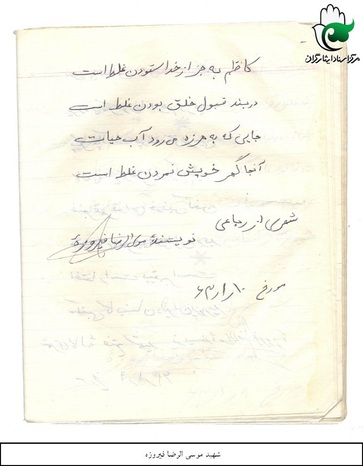 مرکز اسناد ایثارگران
کاظم به جز از خدا ستودن غلط است
دربند قبول خلق بودن غلط است
جایی که به هرزه می رود آب حیات
آنجا گهر خویش نمودن غلط است
شعری از رباعی
نویسنده موسی الرضا فیروزه
مورخ ۱۰/۱/۶۳
شهید موسی الرضا فیروزه